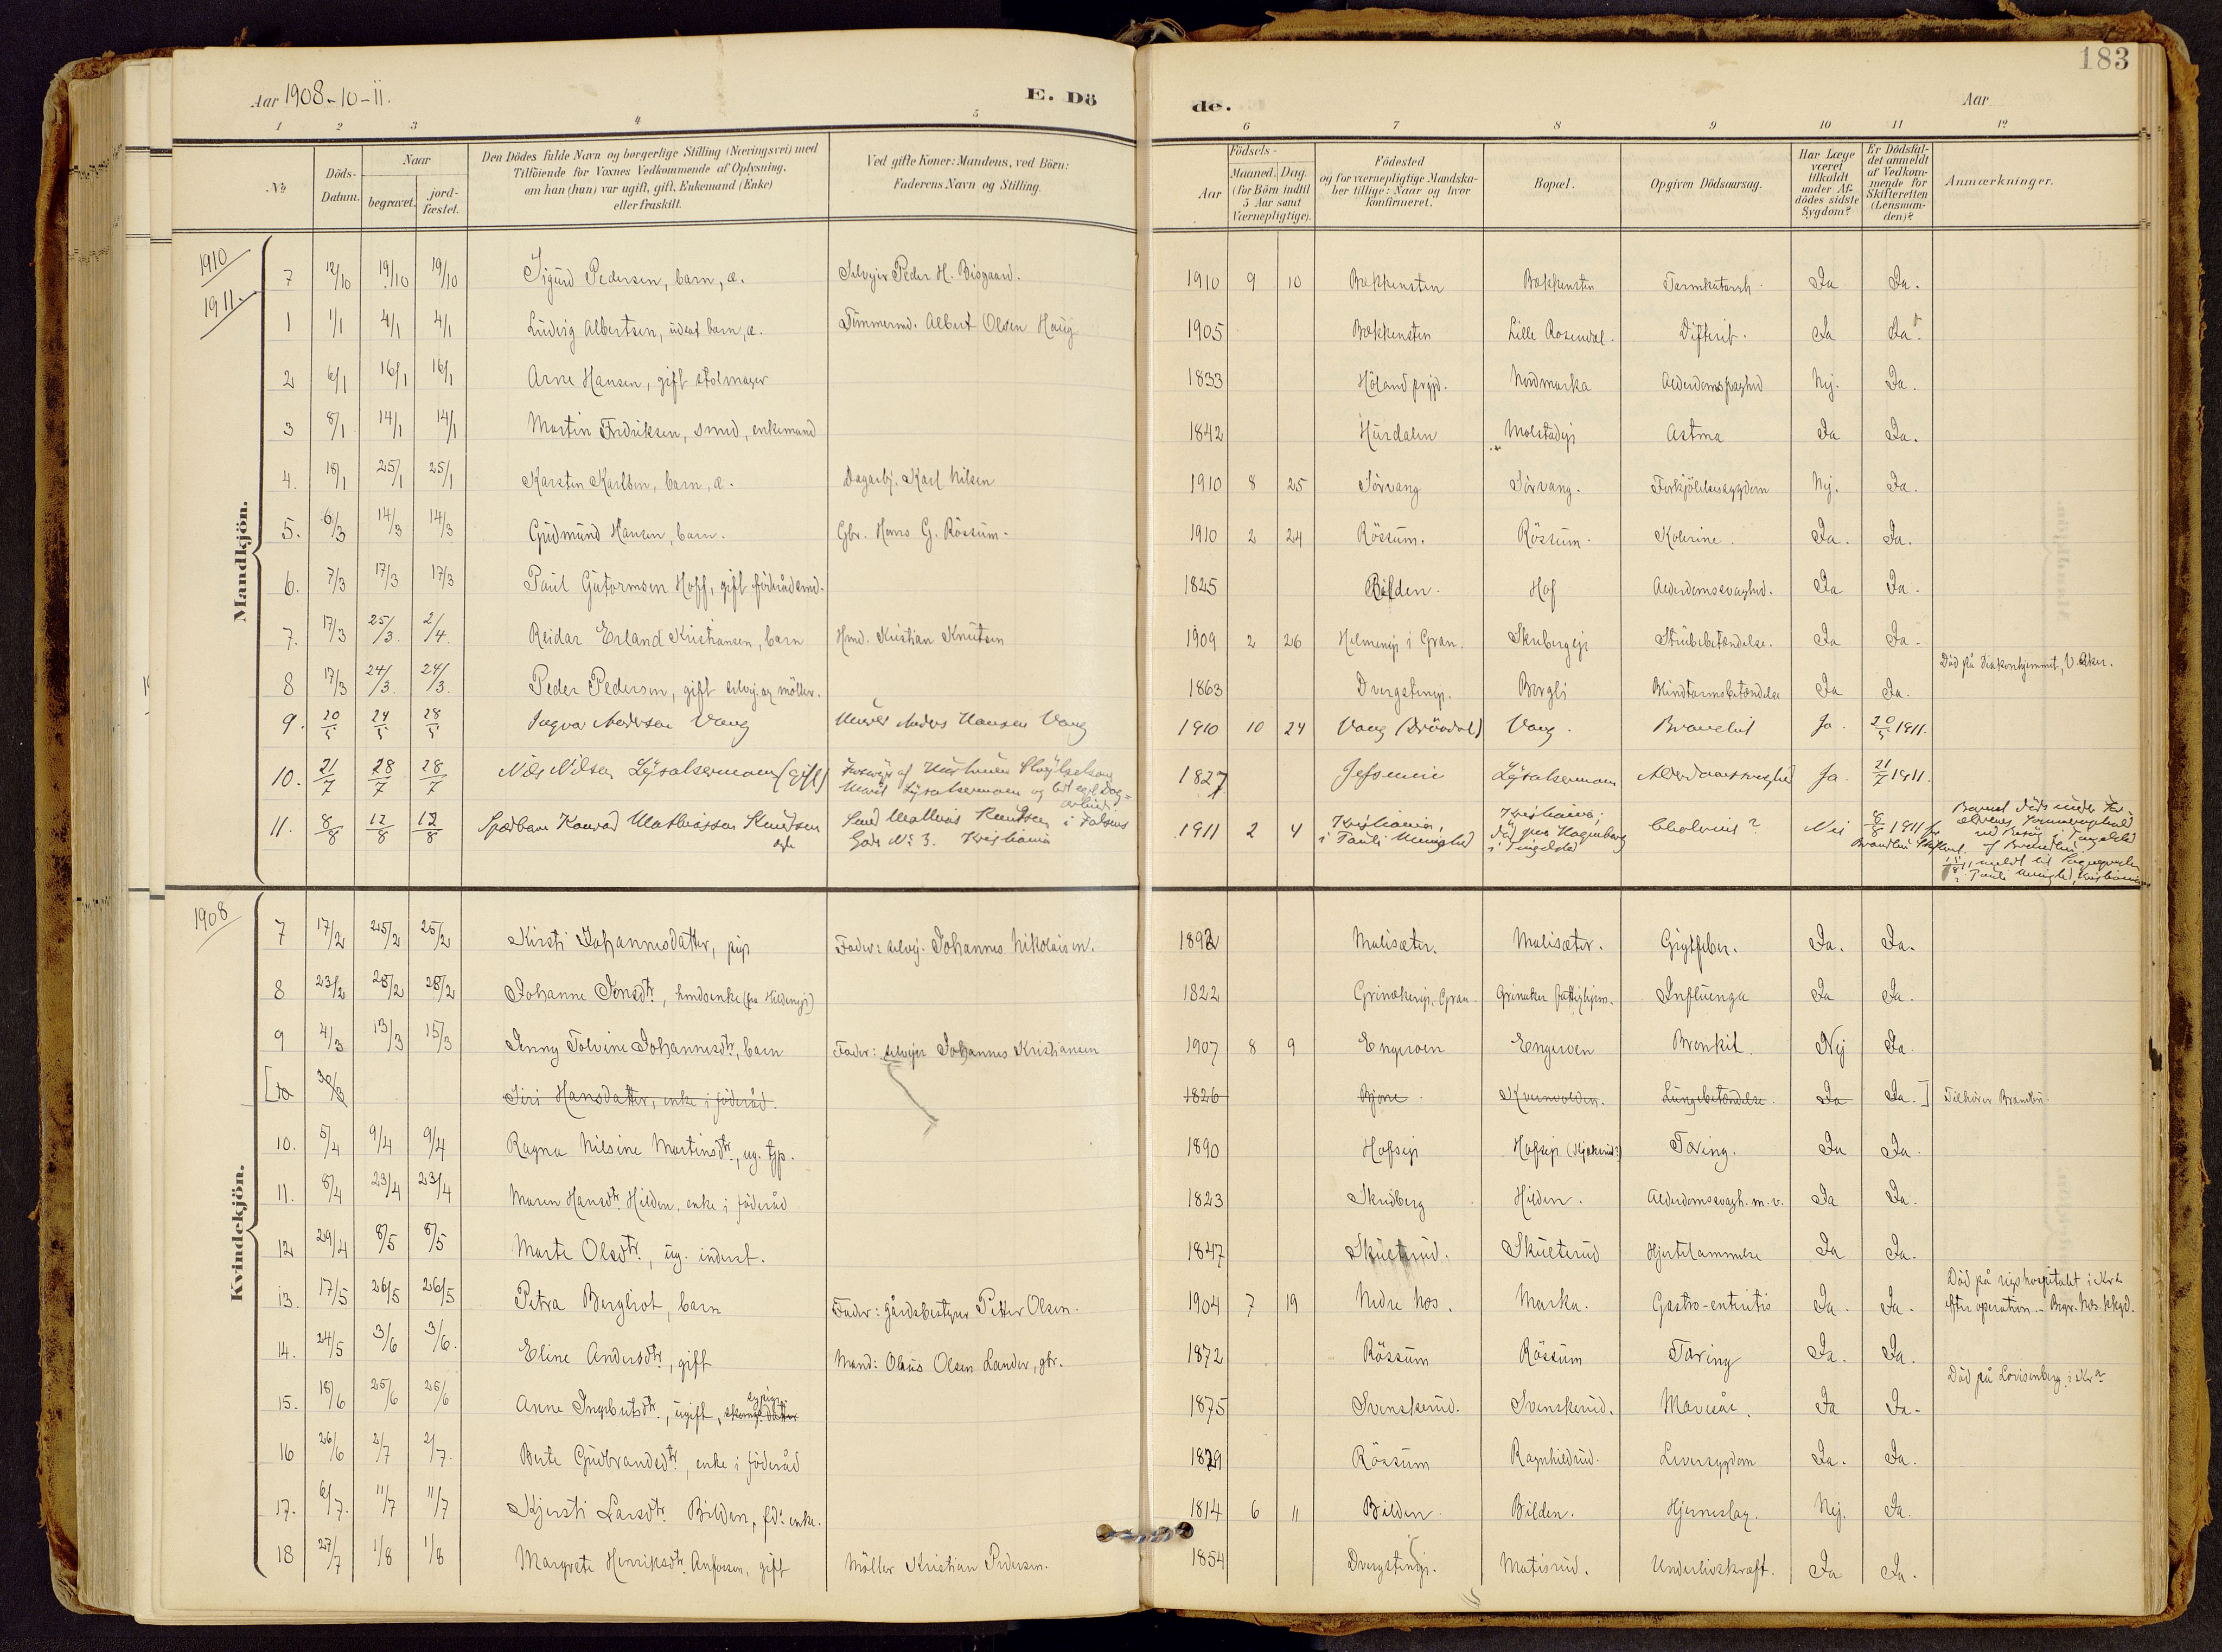 183
Aar 1908-10-11.
E. Dö
de.
Aar
1 2 3 4 5 6 7 8 9 10 11 12
No
Döds-
Datum.
Naar
begravet.
jord-
fæstet.
Den Dödes fulde Navn og borgerlige Stilling (Næringsvei) med
Tilföiende for Voxnes Vedkommende af Oplysning,
om han (hun) var ugift, gift, Enkemand (Enke)
eller fraskilt.
Ved gifte Koner: Mandens, ved Börn:
Faderens Navn og Stilling.
Födsels-
Aar
Maaned. Dag.
(for Börn indtil
5 Aar samt
Værnepligtige).
Födested
og for værnepligtige Mandska-
ber tillige: Naar og hvor
konfirmeret.
Bopæl.
Opgiven Dödsaarsag.
Har Læge
været
tilkaldt
under Af-
dödes sidste
Sygdom?
Er Dödsfal-
det anmeldt
af Vedkom-
mende for
Skifteretten
(Lensman-
den)?
Anmærkninger.
Mandkjön.
1910
7 12/10 19/10 19/10 Sigurd Pedersen, barn, æ. Selvejer Peder H. Bisgaard. 1910 9 10 Bækkensten Bækkensten Tarmkatarrh. Ja Ja.
1911.
1 1/1 4/1 4/1 Ludvig Albertsen, barn, æ. Tömmermd. Albert Olsen Haug 1905 Bækkensten Lille Rosendal. Difterit. Ja Ja.
2 6/1 16/1 16/1 Arne Hansen, gift stolmager 1833 Höland prgjd. Nordmarka Alderdomssvaghed Nej. Ja.
3 8/1 14/1 14/1 Martin Fredriksen, smed, enkemand 1842 Hurdalen Molstadejr Astma Ja Ja.
4. 18/1 25/1 25/1 Karsten Karlsen, barn, æ. Dagarbj. Karl Nilsen 1910 8 25 Sörvang Sörvang. Forkjölelsessygdom Nej. Ja.
5. 6/3 14/3 14/3 Gudmund Hansen, barn. Gbr. Hans G. Rössum. 1910 2 24 Rössum. Rössum. Kolerine. Ja. Ja.
6. 7/3 17/3 17/3 Paul Gutormsen Hoff, gift föderådsmd. 1825 Bilden. Hof Alderdomssvaghed. Ja Ja.
7. 17/3 25/3. 2/4. Reidar Erland Kristiansen, barn Hmd. Kristian Knutsen 1909 2 26 Helmenejr i Gran. Skubergejr Strubebetændelse. Ja Ja.
8 17/3 24/3. 24/3. Peder Pedersen, gift selvej. og möller. 1863 Dvergstenejr. Bergli Blindtarmsbetændelse Ja Ja. Död på Diakonhjemmet, V. Aker.
9. 20/5 24/5 28/5 Ingvar Andersen Vang Anders Hansen Vang 1910 10 24 Vang (Brandbu) Vang. Ja. 20/5 1911.
10. 21/7 28/7 28/7 Nils Nilsen Lysakermoen (gift) 1827 Jefsenmie Lysakermoen Alderdomssvaghed Ja. 21/7 1911.
11. 8/8 12/8 12/8 Spædbarn Konrad Mathiassen Knudsen Smed Mathias Knudsen i Falsens Gade No 3. Kristiania 1911 2 4 Kristiania, i Pauli Menighed Kristiania; död hos Hagenborg i Tingelstad Cholerine? Nei 8/8 1911
Kvindekjön.
1908
7 17/2 25/2 25/2 Kirsti Johannesdatter, pige Fader: selvej. Johannes Nikolaisen. 1892 Malisæter. Malisæter. Gigtfeber. Ja. Ja.
8 23/2 28/2 28/2 Johanne Jonsdtr, hmdsenke (fra Hildenejr) 1822 Grinakerejr, Gran. Grinaker fattighjem. Influenza Ja Ja.
9 4/3 13/3 15/3 Jenny Tolvine Johannesdtr, barn Fader: selvejer Johannes Kristiansen 1907 8 9 Engeroen Engeroen Bronkit. Nej Ja.
[10 Siri Hansdatter, enke i föderåd. 1826 Bjone. Kvernvolden. Lungebetændelse. Ja Ja.] Tilhörer Brandbu.
10. 5/4 9/4 9/4 Ragna Nilsine Martinsdtr, ug. tjp. 1890 Hofsejr Hofsejr Tæring. Ja Ja.
11. 8/4 23/4 23/4 Maren Hansdtr Hilden, enke i föderåd 1823 Skudberg Hilden. Alderdomssvagh. m. v. Ja Ja.
12 29/4 8/5 8/5 Marte Olsdtr, ug. inderst. 1847 Skutterud. Skutterud Hjertelammelse Ja Ja.
13. 17/5 26/5 26/5 Petra Bergliot, barn Fader: gårdsbestyrer Petter Olsen. 1904 7 19 Nedre Næs. Marka. Gastro-enteritis Ja. Ja. Död på rigshospitalet i Kra efter operation. - Begr. Næs kkgd.
14. 24/5 3/6 3/6. Eline Andersdtr, gift Mand: Olaus Olsen Lander, gbr. 1872 Rössum Rössum Tæring Ja. Ja.
15. 18/6 25/6 25/6 Anne Ingebretsdtr, ugift, sypige 1875 Svenskerud. Svenskerud. Mavesår. Ja Ja. Död på Lovisenberg i Kra
16 26/6 2/7 2/7. Berte Gudbrandsdtr, enke i föderåd 1829 Rössum Ragnhildrud. Leversygdom Ja. Ja.
17. 6/7. 11/7 11/7 Kjersti Larsdtr Bilden, fdr. enke. 1814 6 11 Bilden. Bilden. Hjerneslag. Nej. Ja.
18 27/7 1/8 1/8 Margrete Henriksdtr Anfinsen, gift Möller Kristian Pedersen. 1854 Dvergstenejr. Matisrud. Underlivskræft. Ja Ja.